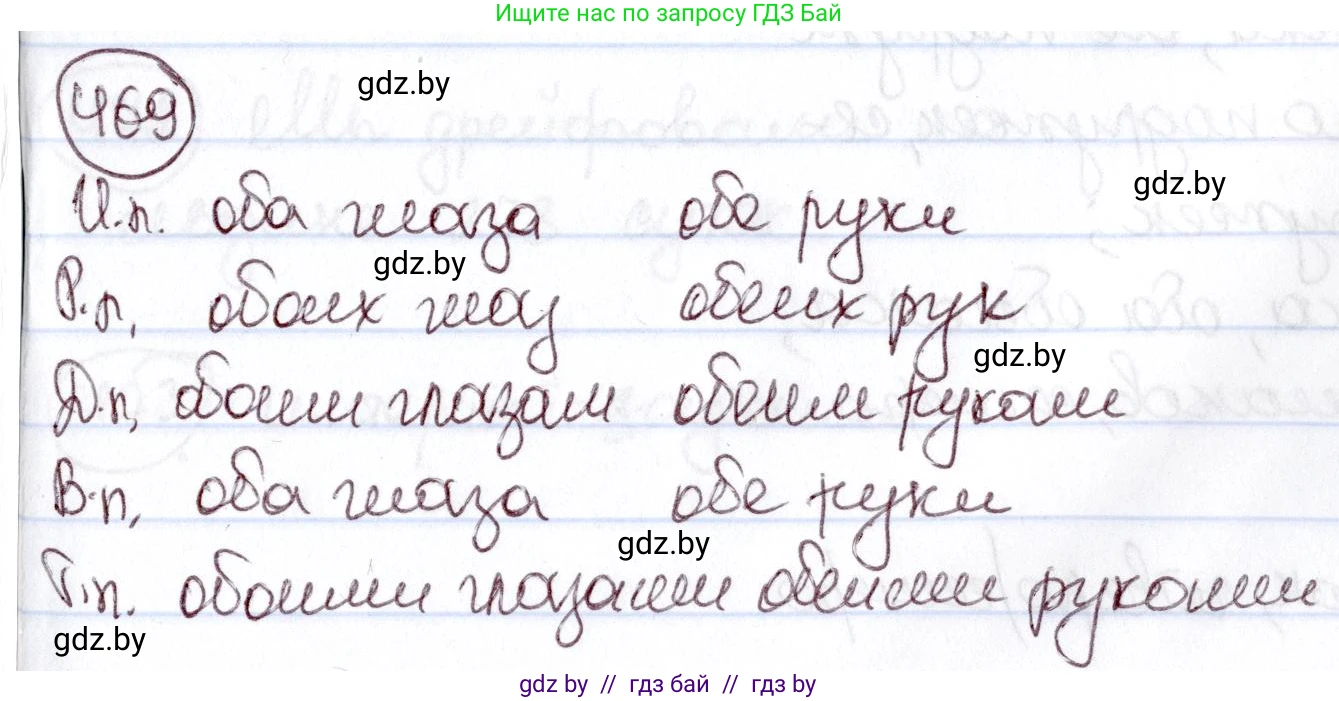 Ищите нас по запросу ГДЗ Бай
469
gdz.by
gdz.by
И.п. оба глаза обе руки
gdz.by
Р.п. обоих глаз обеих рук
gdz.by
Д.п. обоим глазам обеим рукам
В.п. оба глаза обе руки
gdz.by
Т.п. обоими глазами обеими руками
gdz.by
gdz by // гдз бай // гдз by